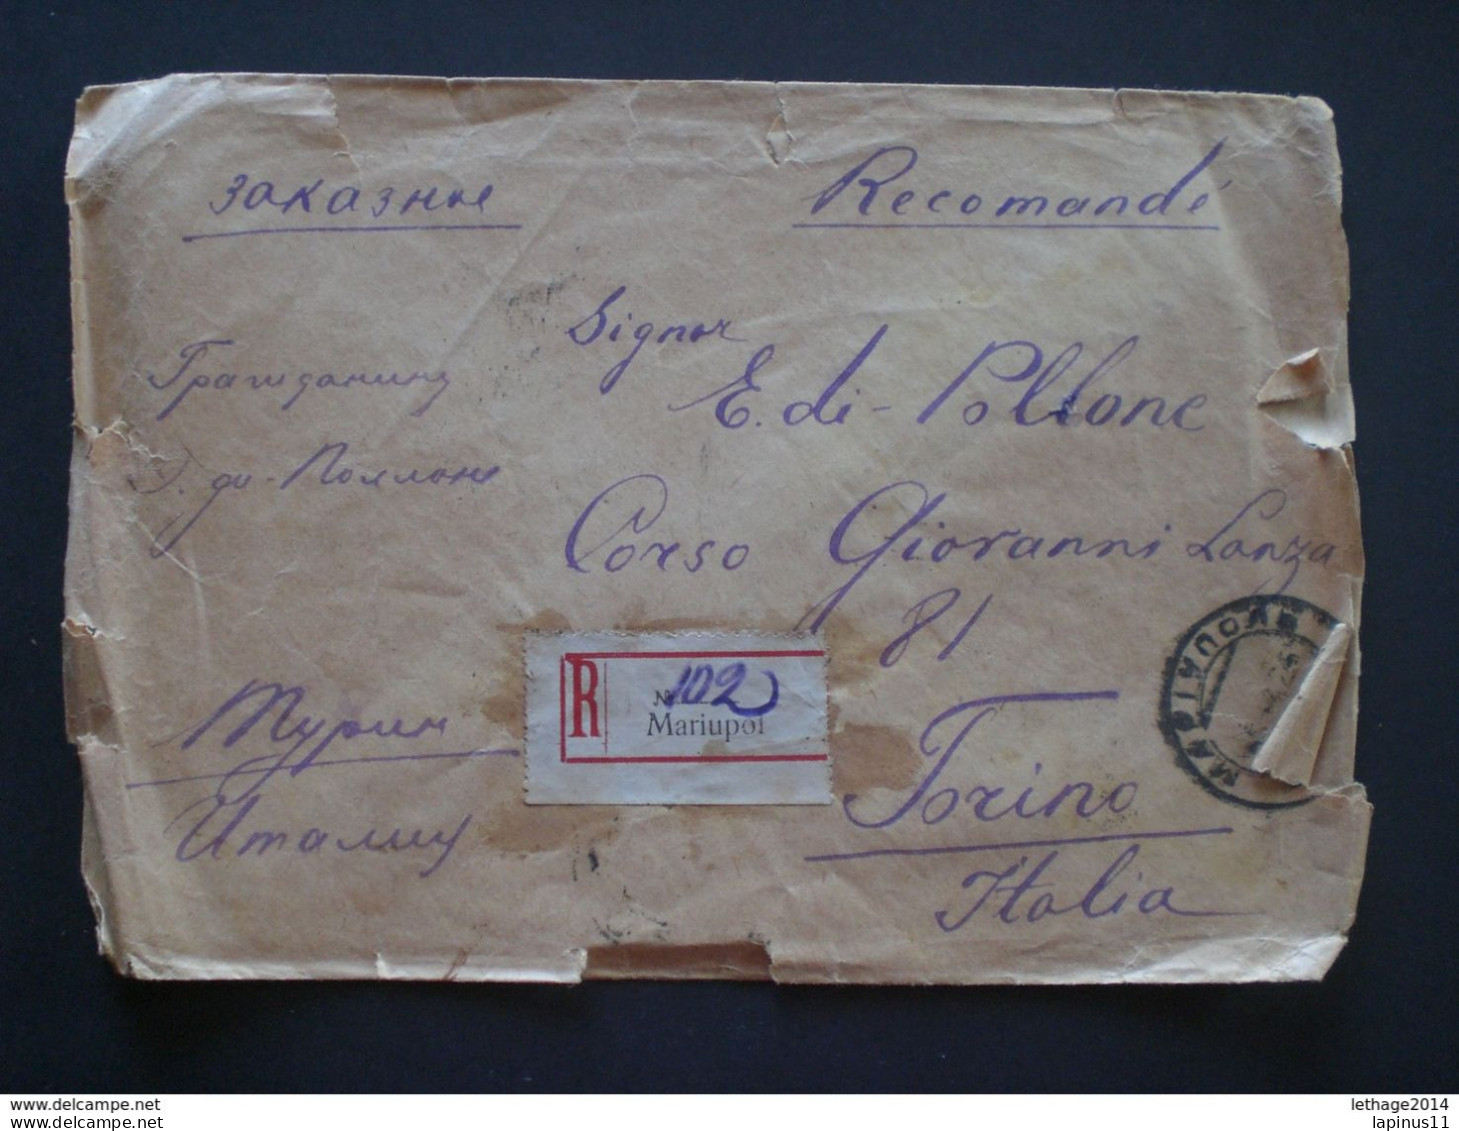 заказное
Recomandé
Signor
E. di-Pollone
Corso Giovanni Lanza
81
Torino
Italia
Гражданину
Э. ди-Поллоне
Турин
Италия
R
№ 102
Mariupol
МАРІУПОЛЬ
www.delcampe.net
www.delcampe.net
lethage2014
lapinus11